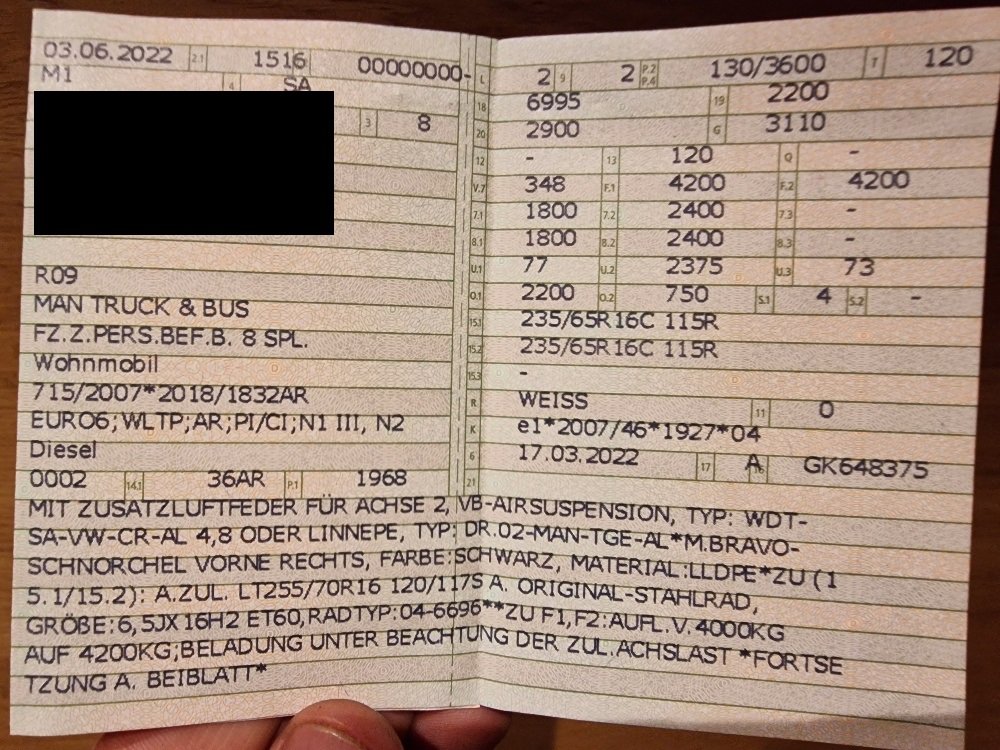 03.06.2022 2.1 1516 00000000-
M1 4 SA
3 8
R09
MAN TRUCK & BUS
FZ.Z.PERS.BEF.B. 8 SPL.
Wohnmobil
715/2007*2018/1832AR
EURO6;WLTP;AR;PI/CI;N1 III, N2
Diesel
0002 14.1 36AR P.1 1968
L 2 9 2 P.2 P.4 130/3600 T 120
18 6995 19 2200
20 2900 G 3110
12 - 13 120 Q -
V.7 348 F.1 4200 F.2 4200
7.1 1800 7.2 2400 7.3 -
8.1 1800 8.2 2400 8.3 -
U.1 77 U.2 2375 U.3 73
O.1 2200 O.2 750 S.1 4 S.2 -
15.1 235/65R16C 115R
15.2 235/65R16C 115R
15.3 -
R WEISS 11 0
K e1*2007/46*1927*04
6 17.03.2022 17 A 16 GK648375
21
MIT ZUSATZLUFTFEDER FÜR ACHSE 2, VB-AIRSUSPENSION, TYP: WDT-
SA-VW-CR-AL 4,8 ODER LINNEPE, TYP: DR.02-MAN-TGE-AL*M.BRAVO-
SCHNORCHEL VORNE RECHTS, FARBE:SCHWARZ, MATERIAL:LLDPE*ZU (1
5.1/15.2): A.ZUL. LT255/70R16 120/117S A. ORIGINAL-STAHLRAD,
GRÖßE:6,5JX16H2 ET60,RADTYP:04-6696**ZU F1,F2:AUFL.V.4000KG
AUF 4200KG;BELADUNG UNTER BEACHTUNG DER ZUL.ACHSLAST *FORTSE
TZUNG A. BEIBLATT*